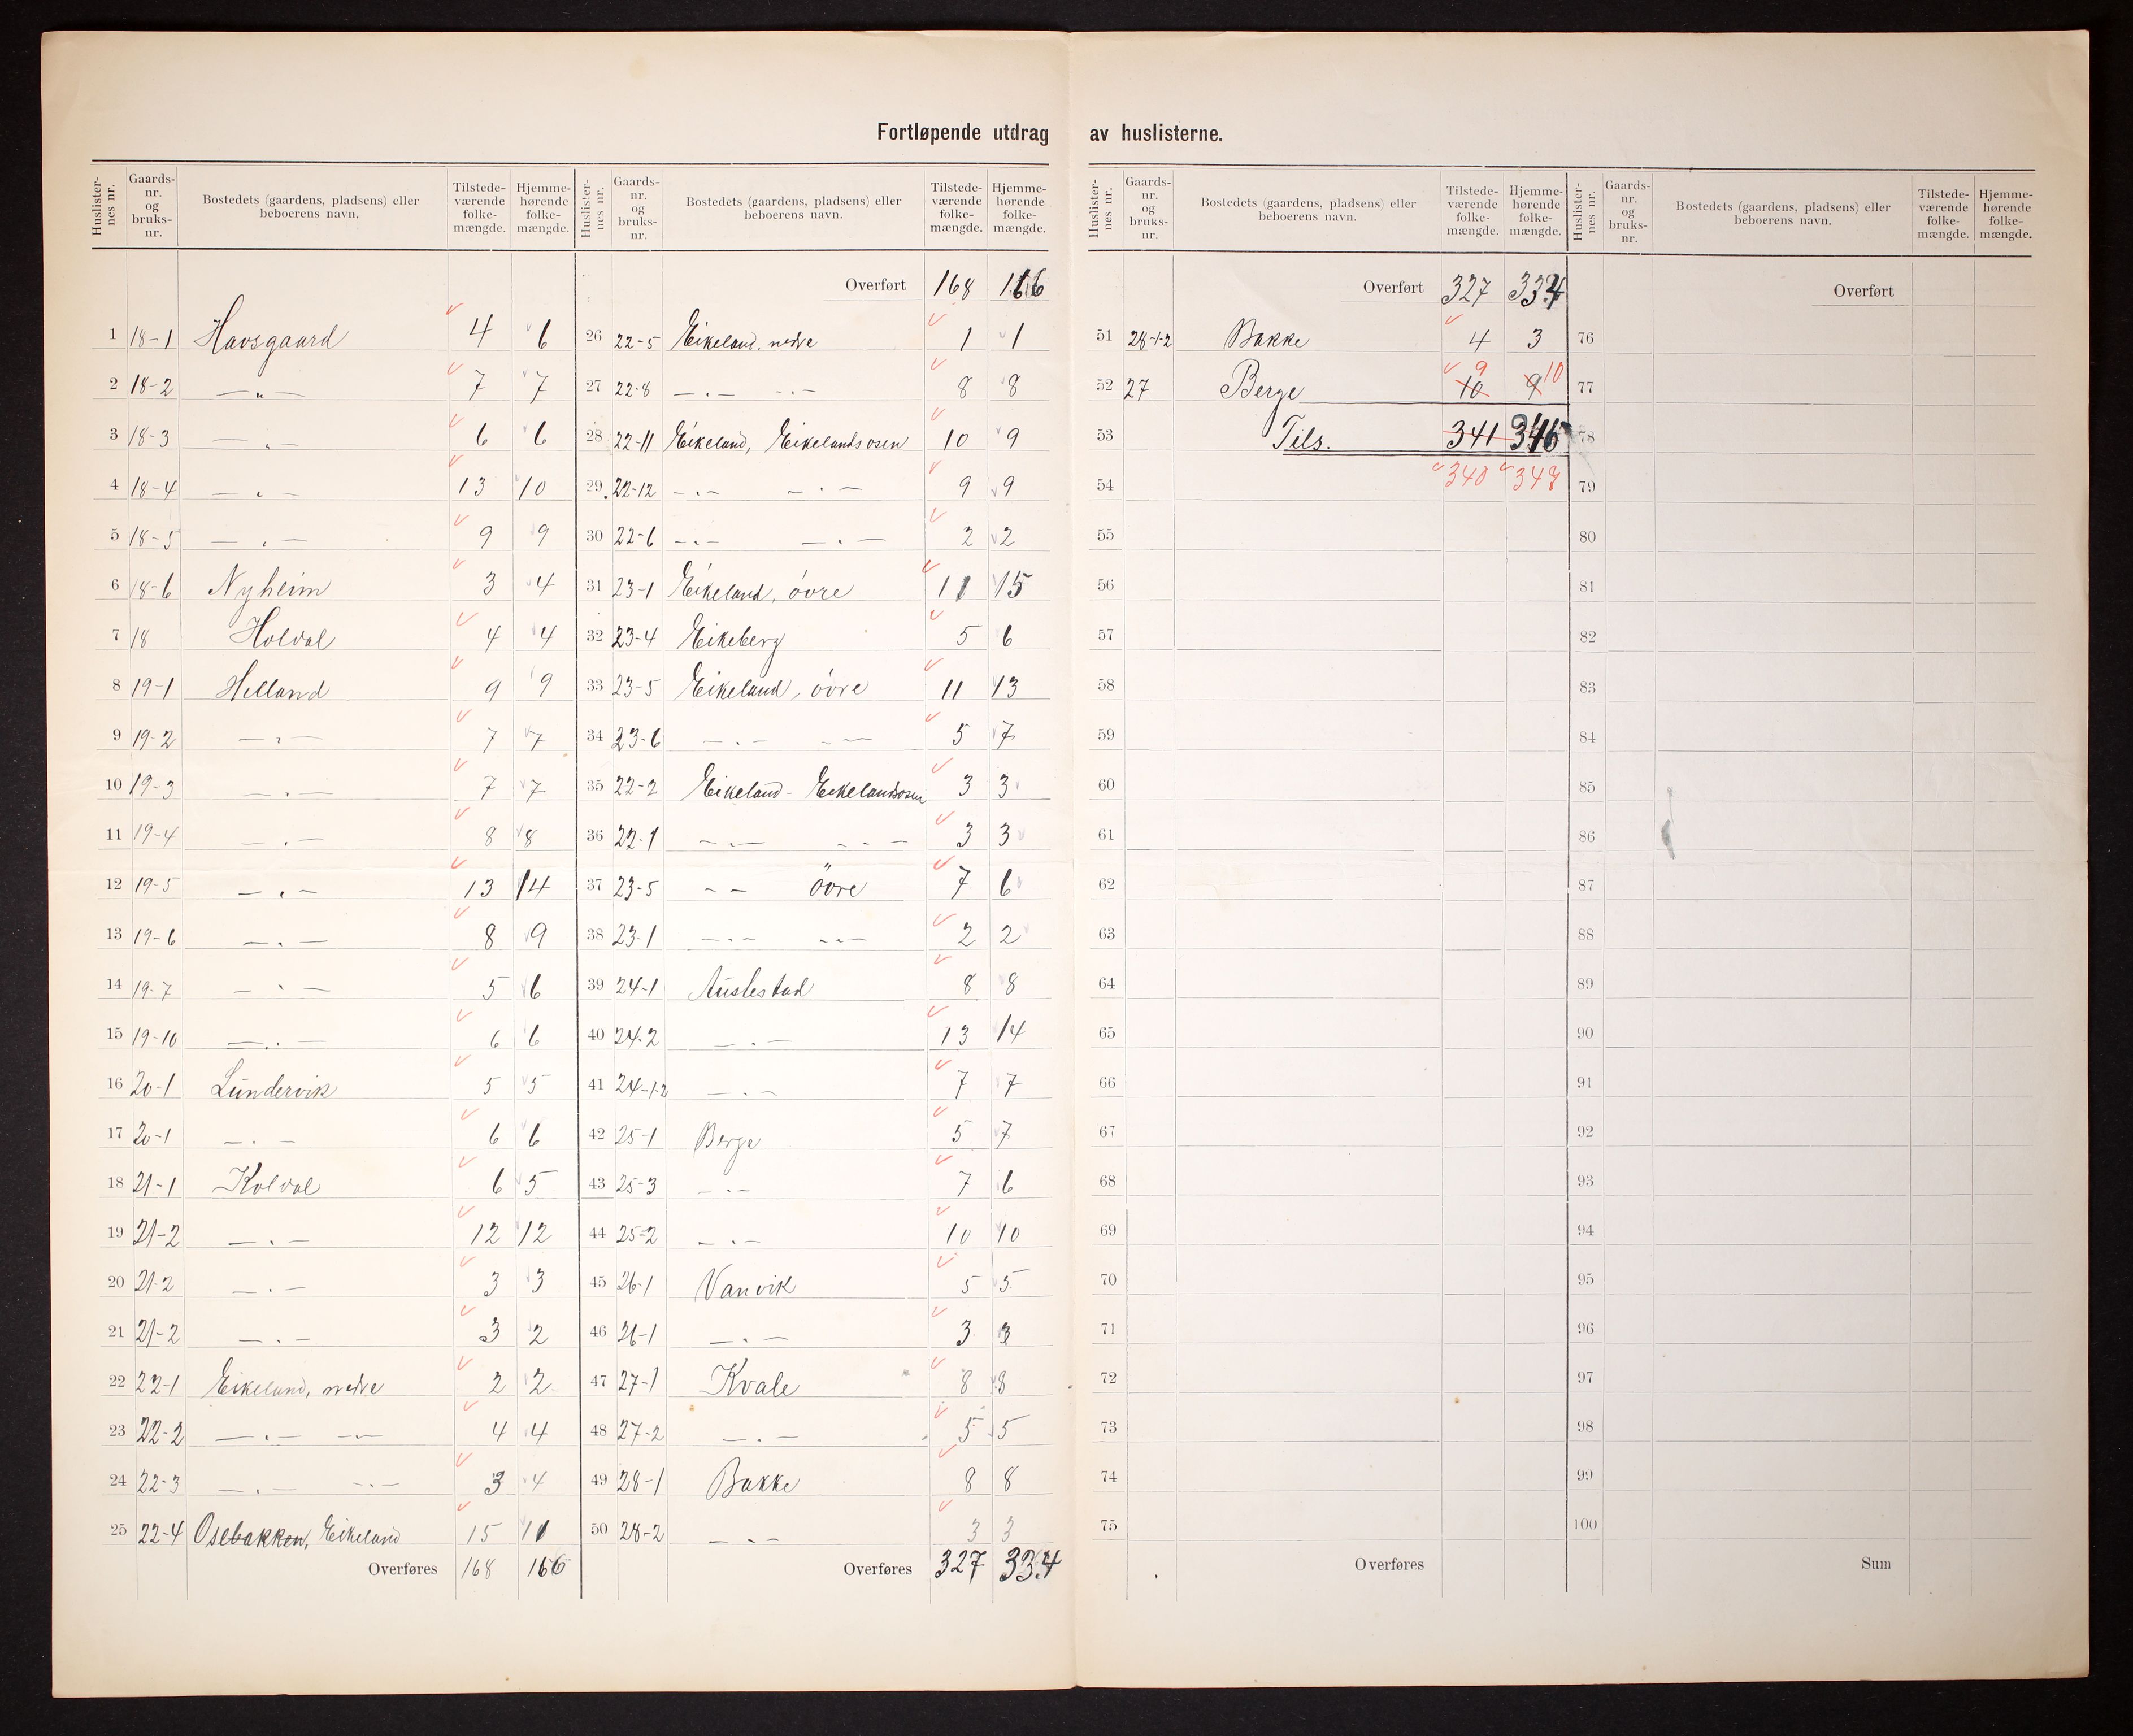 Fortløpende utdrag av huslisterne.
Huslisternes nr. | Gaards-nr. og bruks-nr. | Bostedets (gaardens, pladsens) eller beboerens navn. | Tilstede-værende folke-mængde. | Hjemme-hørende folke-mængde.
1 18-1 Havsgaard 4 6
2 18-2 —„— 7 7
3 18-3 —„— 6 6
4 18-4 —„— 13 10
5 18-5 —„— 9 9
6 18-6 Nyheim 3 4
7 18 Holdal 4 4
8 19-1 Helland 9 9
9 19-2 —„— 7 7
10 19-3 —„— 7 7
11 19-4 —„— 8 8
12 19-5 —„— 13 14
13 19-6 —„— 8 9
14 19-7 —„— 5 6
15 19-10 —„— 6 6
16 20-1 Lündervik 5 5
17 20-1 —„— 6 6
18 21-1 Koldal 6 5
19 21-2 —„— 12 12
20 21-2 —„— 3 3
21 21-2 —„— 3 2
22 22-1 Eikeland, nedre 2 2
23 22-2 —„— —„— 4 4
24 22-3 —„— —„— 3 4
25 22-4 Osebakken, Eikeland 15 11
Overføres 168 166
Huslisternes nr. | Gaards-nr. og bruks-nr. | Bostedets (gaardens, pladsens) eller beboerens navn. | Tilstede-værende folke-mængde. | Hjemme-hørende folke-mængde.
Overført 168 166
26 22-5 Eikeland, nedre 1 1
27 22-8 —„— —„— 8 8
28 22-11 Eikeland, Eikelandsosen 10 9
29 22-12 —„— —„— 9 9
30 22-6 —„— —„— 2 2
31 23-1 Eikeland, óvre 11 15
32 23-4 Eikeberg 5 6
33 23-5 Eikeland, óvre 11 13
34 23-6 —„— —„— 5 7
35 22-2 Eikeland - Eikelandsosen 3 3
36 22-1 —„— —„— 3 3
37 23-5 — — övre 7 6
38 23-1 —„— —„— 2 2
39 24-1 Austestad 8 8
40 24-2 —„— 13 14
41 24-1-2 —„— 7 7
42 25-1 Berge 5 7
43 25-3 —„— 7 6
44 25-2 —„— 10 10
45 26-1 Vanvik 5 5
46 26-1 —„— 3 3
47 27-1 Kvale 8 8
48 27-2 —„— 5 5
49 28-1 Bakke 8 8
50 28-2 —„— 3 3
Overføres 327 334
Huslisternes nr. | Gaards-nr. og bruks-nr. | Bostedets (gaardens, pladsens) eller beboerens navn. | Tilstede-værende folke-mængde. | Hjemme-hørende folke-mængde.
Overført 327 334
51 28-1-2 Bakke 4 3
52 27 Berge 10 9 9 10
53 Tils. 341 346
54 340 347
55
56
57
58
59
60
61
62
63
64
65
66
67
68
69
70
71
72
73
74
75
Overføres
Huslisternes nr. | Gaards-nr. og bruks-nr. | Bostedets (gaardens, pladsens) eller beboerens navn. | Tilstede-værende folke-mængde. | Hjemme-hørende folke-mængde.
Overført
76
77
78
79
80
81
82
83
84
85
86
87
88
89
90
91
92
93
94
95
96
97
98
99
100
Sum